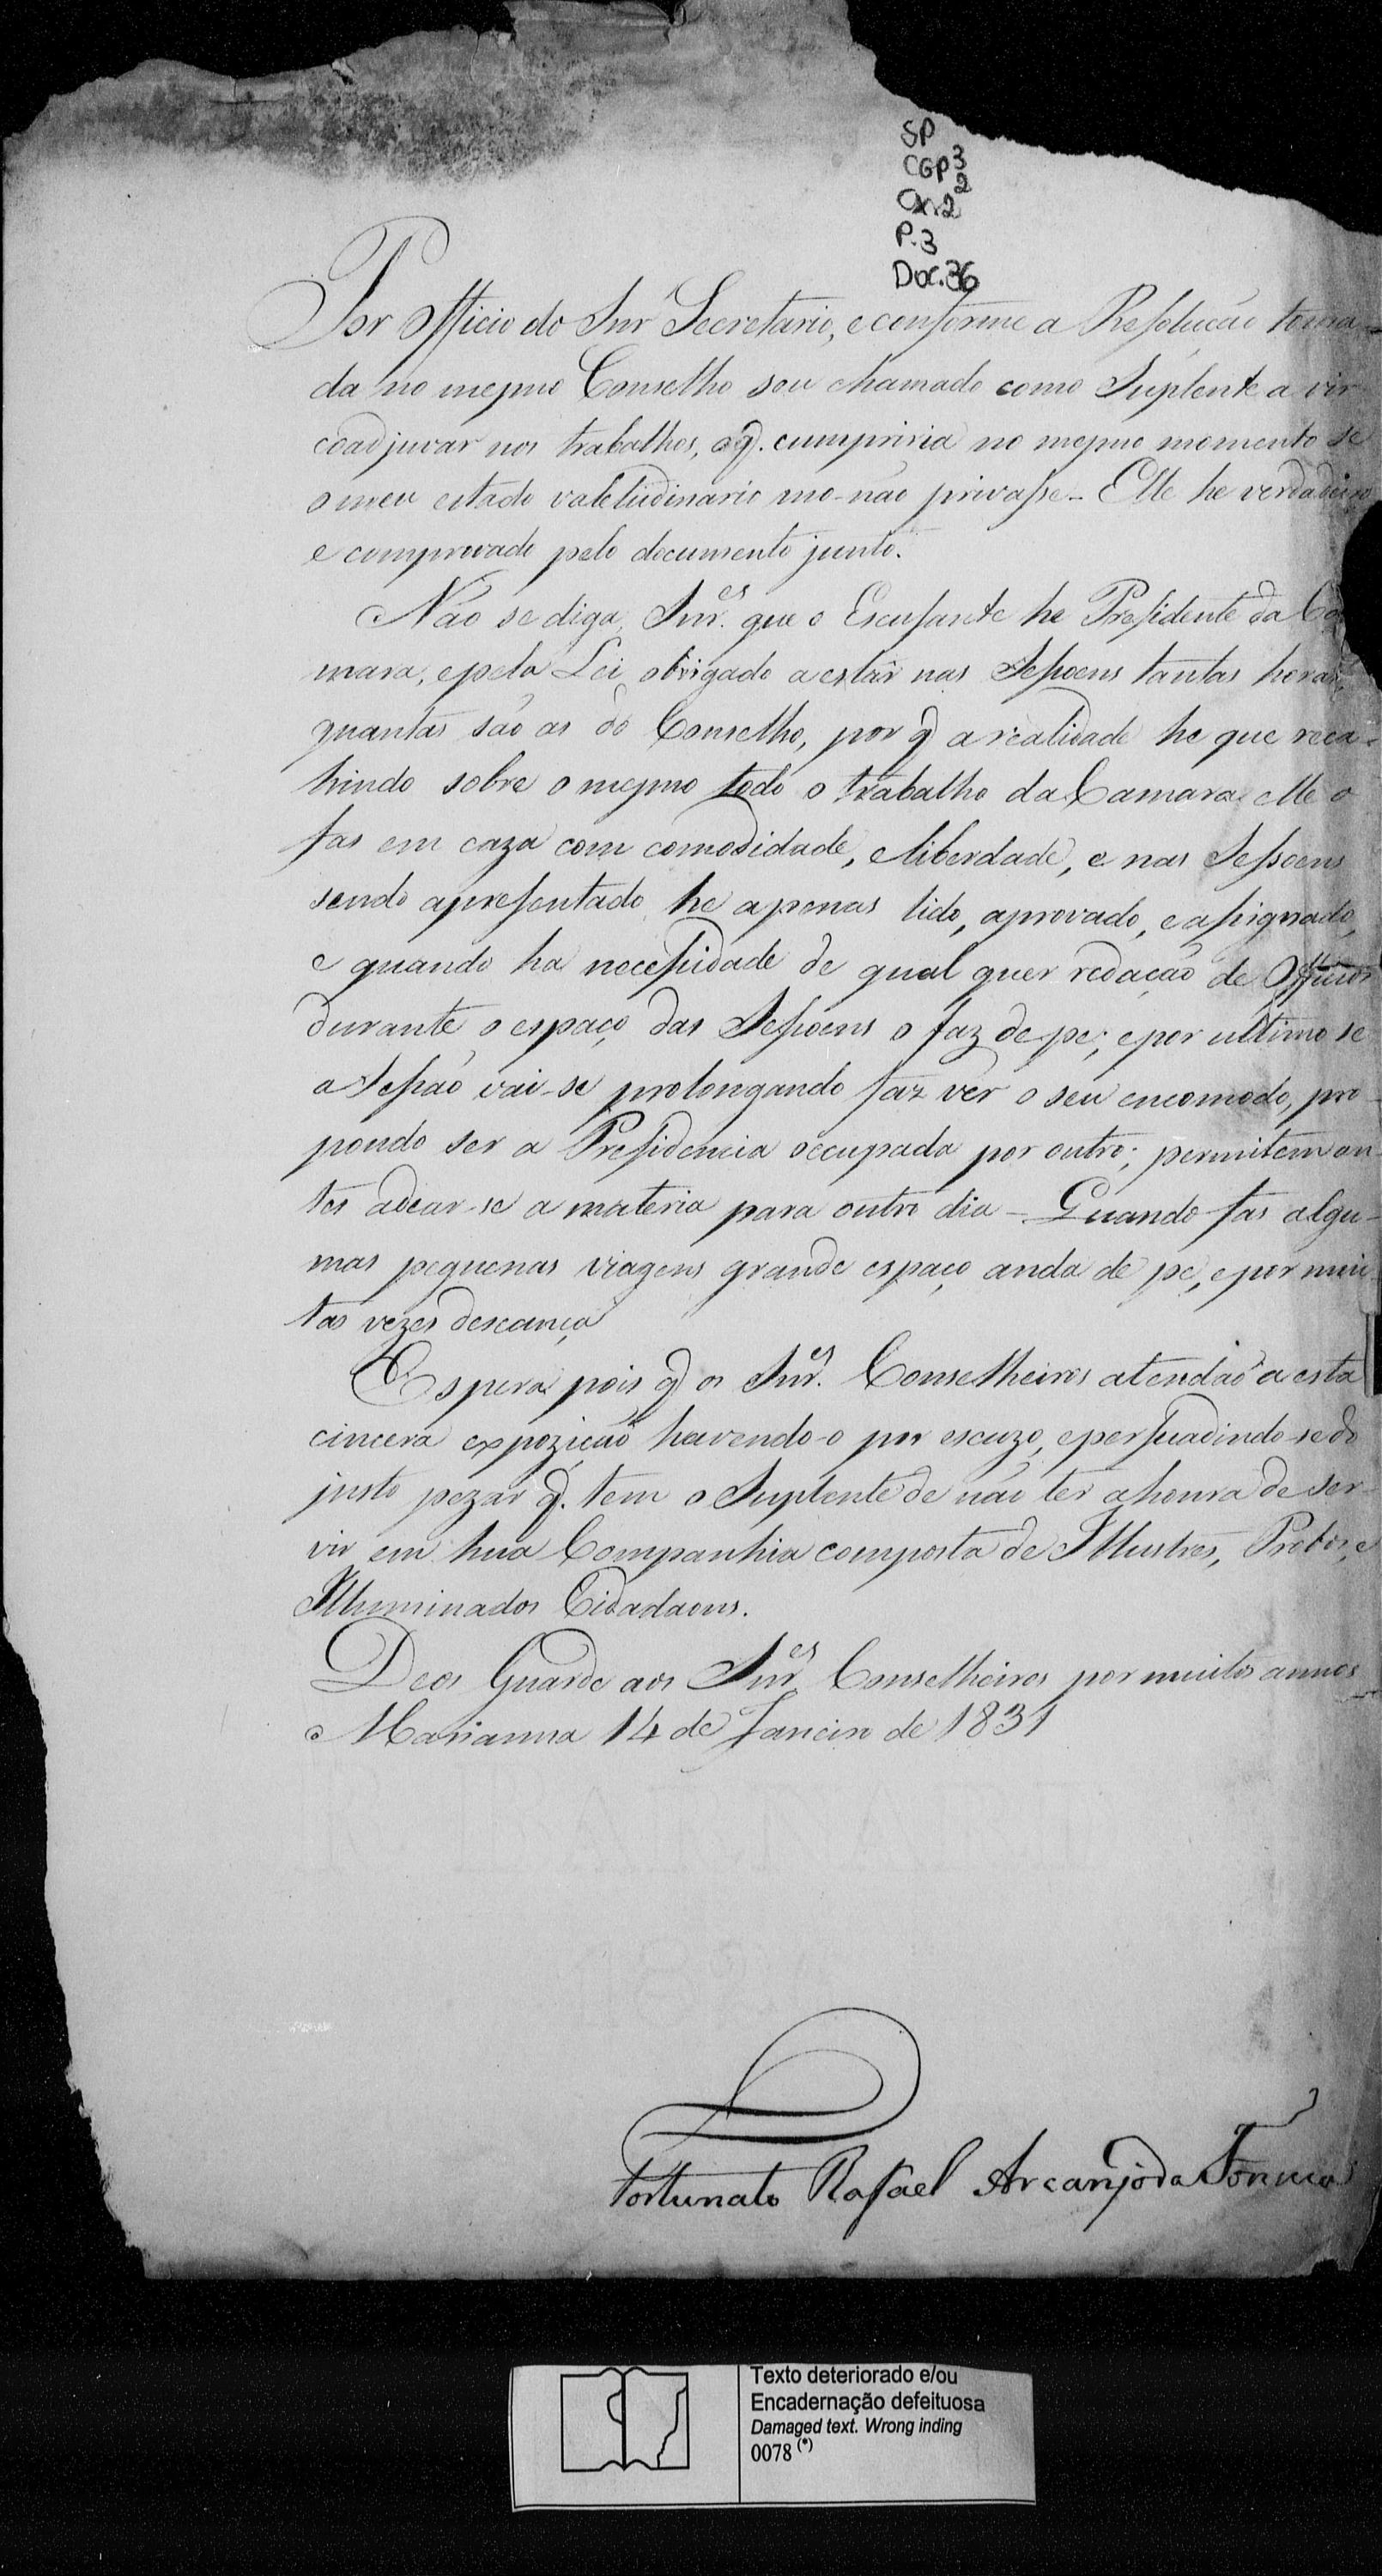 SP
CGP3
Cx.2 2
P.3
Doc.36
Por Officio do Snr Secretario, e conforme a Resolução toma-
da no mesmo Conselho sou chamado como Suplente a vir
coadjuvar nos trabalhos, o q. cumpriria no mesmo momento se
o meu estado valetudinario mo-não privasse - Elle he verdadeiro
e comprovado pelo documento junto.
Não se diga, Snr.es que o Escusante he Presidente da Ca
mara, e pela Lei obrigado a estár nas Sessoens tantas horas,
quantas são as do Conselho, por q a realidade he que reca-
hindo sobre o mesmo todo o trabalho da Camara elle o
fas em caza com comodidade, e liberdade, e nas Sessoens
sendo apresentado he apenas lido, aprovado, e assignado,
e quando ha necessidade de qual quer redação de Officios
durante o espaço das Sessoens o faz de pe; e por ultimo se
a Sessão vai-se prolongando faz ver o seu encomodo, pro-
pondo ser a Presidencia occupada por outro; permitem an-
tes adear-se a materia para outro dia - Quando fas algu-
mas pequenas viagens grande espaço anda de pe, e por mui-
tas vezes descança
Espera pois q os Snr.es Conselheiros atendão a esta
cincera expozição havendo-o por escuzo, e persuadindo-se do
justo pezar q. tem o Suplente de não ter a honra de ser-
vir em hua Companhia composta de Illustres, Probos, e
Illuminados Cidadaons.
Deos Guarde aos Snr.es Conselheiros por muitos annos
Marianna 14 de Janeiro de 1831
Fortunato Rafael Arcanjo da Fonseca
Texto deteriorado e/ou
Encadernação defeituosa
Damaged text. Wrong inding
0078 (*)